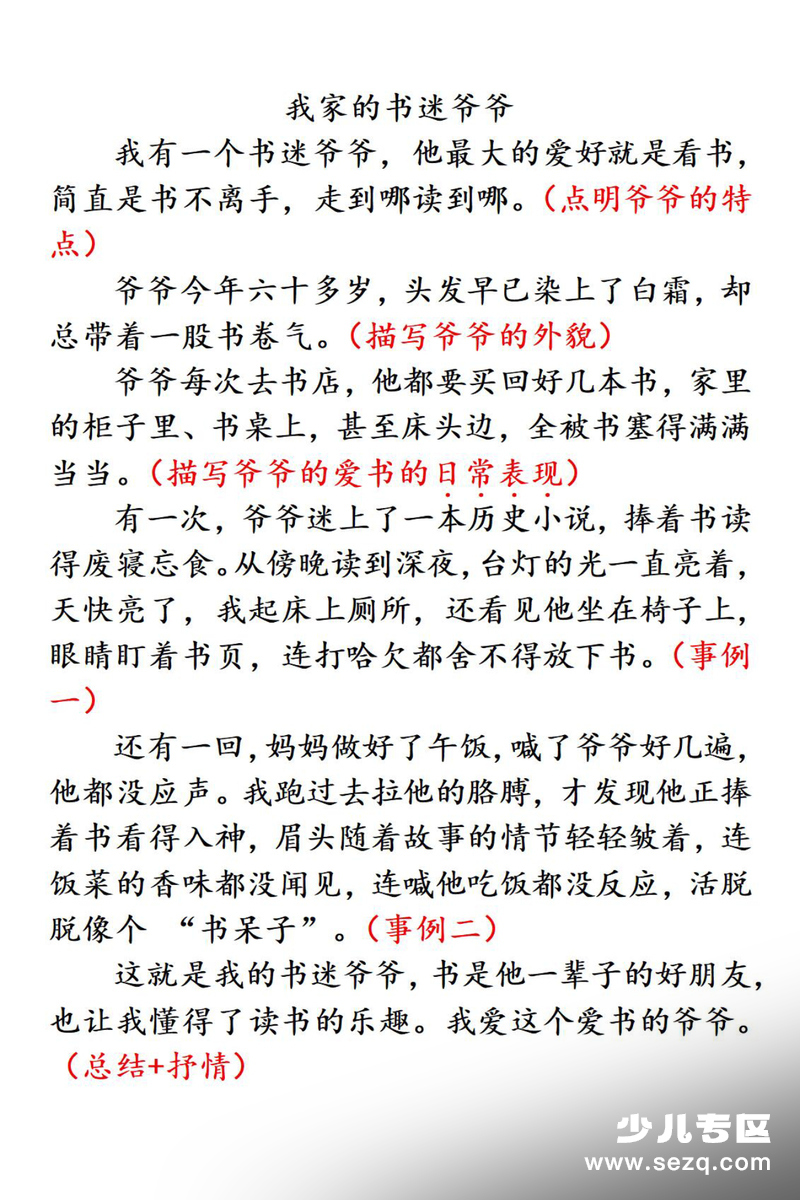 我家的书迷爷爷
我有一个书迷爷爷，他最大的爱好就是看书，
简直是书不离手，走到哪读到哪。（点明爷爷的特
点）
爷爷今年六十多岁，头发早已染上了白霜，却
总带着一股书卷气。（描写爷爷的外貌）
爷爷每次去书店，他都要买回好几本书，家里
的柜子里、书桌上，甚至床头边，全被书塞得满满
当当。（描写爷爷的爱书的日常表现）
有一次，爷爷迷上了一本历史小说，捧着书读
得废寝忘食。从傍晚读到深夜，台灯的光一直亮着，
天快亮了，我起床上厕所，还看见他坐在椅子上，
眼睛盯着书页，连打哈欠都舍不得放下书。（事例
一）
还有一回，妈妈做好了午饭，喊了爷爷好几遍，
他都没应声。我跑过去拉他的胳膊，才发现他正捧
着书看得入神，眉头随着故事的情节轻轻皱着，连
饭菜的香味都没闻见，连喊他吃饭都没反应，活脱
脱像个 “书呆子”。（事例二）
这就是我的书迷爷爷，书是他一辈子的好朋友，
也让我懂得了读书的乐趣。我爱这个爱书的爷爷。
（总结+抒情）
少儿专区
www.sezq.com